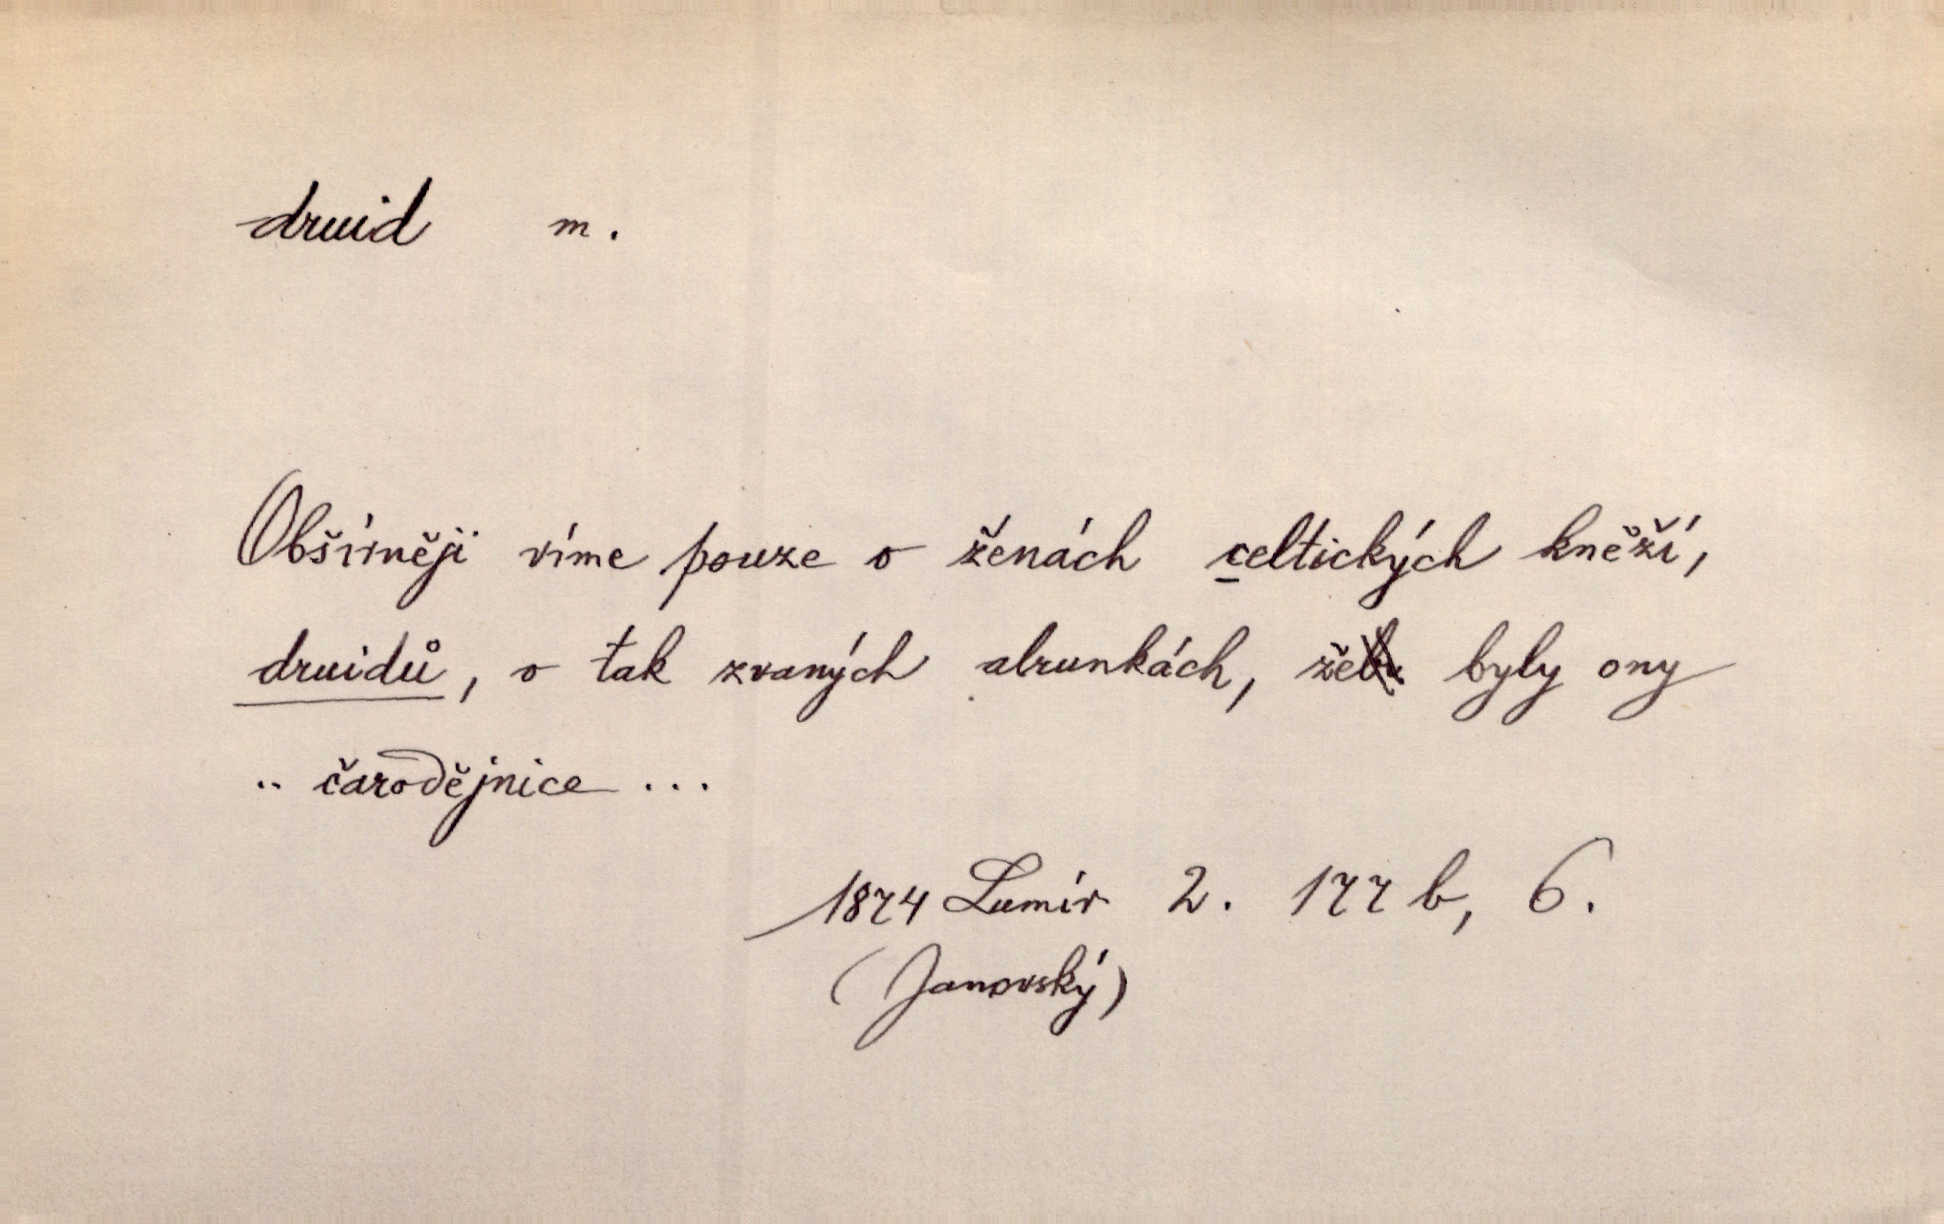 druid m.
Obšírněji víme pouze o ženách celtických kněží,
druidů, o tak zvaných alrunkách, že byly ony
.. čarodějnice ...
1874 Lumír 2. 177 b, 6.
(Janovský)